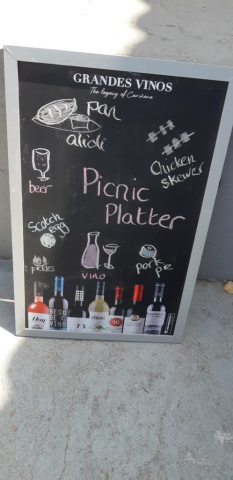 GRANDES VINOS
The legacy of Cariñena
pan
alioli
Chicken
skewer
beer
Picnic
Platter
Scotch
egg
pickles
vino
pork
pie